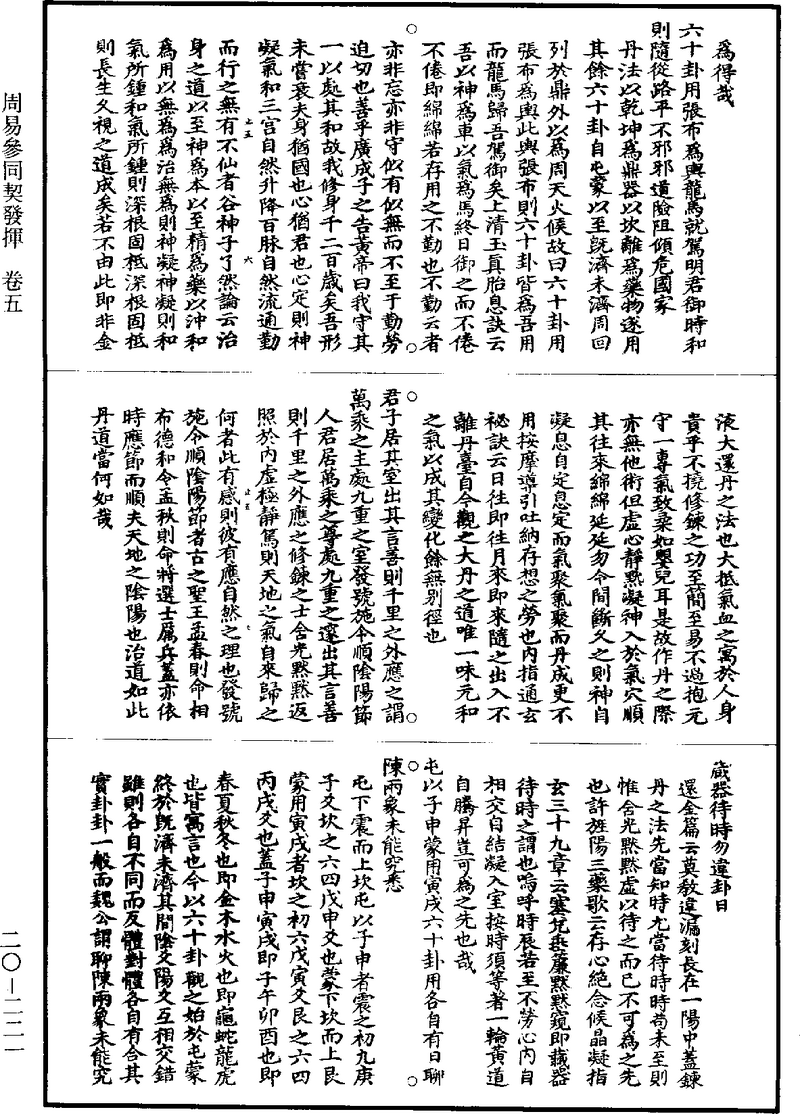 爲得哉
六十卦用張布爲輿龍馬就駕明君御時和
則隨從路平不邪邪道險阻傾危國家
丹法以乾坤爲鼎器以坎離爲藥物遂用
其餘六十卦自屯蒙以至旣濟未濟周回
列於鼎外以爲周天火候故曰六十卦用
張布爲輿此輿張布則六十卦皆爲吾用
而龍馬歸吾駕御矣上清玉眞胎息訣云
吾以神爲車以氣爲馬終日御之而不倦
不倦即綿綿若存用之不勤也不勤云者
亦非忘亦非守似有似無而不至于勤勞
迫切也善乎廣成子之告黃帝曰我守其
一以處其和故我修身千二百歲矣吾形
未嘗衰夫身猶國也心猶君也心定則神
凝氣和三宮自然升降百脉自然流通勤
而行之無有不仙者谷神子了然論云治
身之道以至神爲本以至精爲藥以沖和
爲用以無爲爲治無爲則神凝神凝則和
氣所鍾和氣所鍾則深根固柢深根固柢
則長生久視之道成矣若不由此即非金
液大還丹之法也大抵氣血之寓於人身
貴乎不撓修鍊之功至簡至易不過抱元
守一專氣致柔如嬰兒耳是故作丹之際
亦無他術但虛心靜黙凝神入於氣穴順
其往來綿綿延延勿令間斷久之則神自
凝息自定息定而氣聚氣聚而丹成更不
用按摩導引吐納存想之勞也內指通玄
祕訣云日往即往月來即來隨之出入不
離丹臺自今觀之大丹之道唯一味元和
之氣以成其變化餘無别徑也
君子居其室出其言善則千里之外應之謂
萬乘之主處九重之室發號施令順陰陽節
人君居萬乘之尊處九重之邃出其言善
則千里之外應之修鍊之士含光黙黙返
照於內虛極靜篤則天地之氣自來歸之
何者此有感則彼有應自然之理也發號
施令順陰陽節者古之聖王孟春則命相
布德和令孟秋則命將選士厲兵蓋亦依
時應節而順夫天地之陰陽也治道如此
丹道當何如哉
藏器待時勿違卦日
還金篇云莫教違漏刻長在一陽中蓋鍊
丹之法先當知時尤當待時時苟未至則
惟含光黙黙虛以待之而已不可爲之先
也許旌陽三藥歌云存心絕念候晶凝指
玄三十九章云塞兌垂簾黙黙窺即藏器
待時之謂也嗚呼時辰若至不勞心內自
相交自結凝入室按時須等著一輪黃道
自騰昇豈可爲之先也哉
屯以子申蒙用寅戌六十卦用各自有日聊
陳兩象未能究悉
屯下震而上坎屯以子申者震之初九庚
子爻坎之六四戊申爻也蒙下坎而上艮
蒙用寅戌者坎之初六戊寅爻艮之六四
丙戌爻也蓋子申寅戌即子午卯酉也即
春夏秋冬也即金木水火也即龜蛇龍虎
也皆寓言也今以六十卦觀之始於屯蒙
終於旣濟未濟其間陰爻陽爻互相交錯
雖則各自不同而反體對體各自有合其
實卦卦一般而魏公謂聊陳兩象未能究
周易參同契發揮 卷五
二〇-二二一